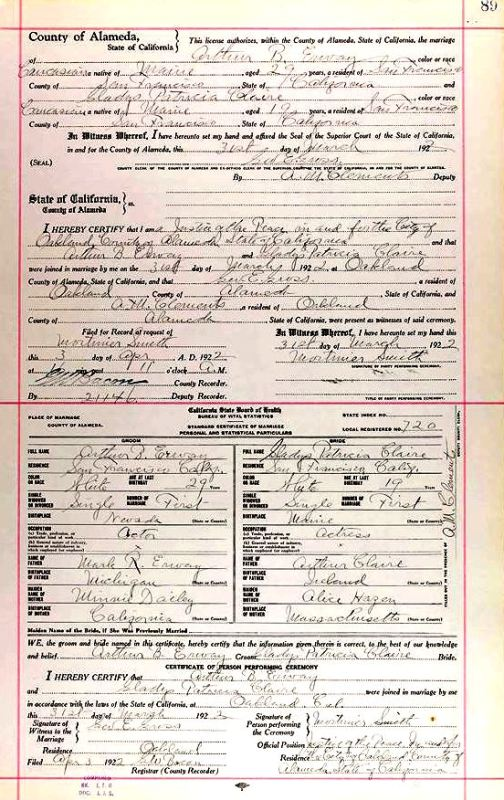 89
County of Alameda,
State of California
This license authorizes, within the County of Alameda, State of California, the marriage
of Arthur B. Erway, color or race
Caucasian a native of Maine, aged 29 years, a resident of San Francisco
County of San Francisco State of California and
Gladys Patricia Claire, color or race
Caucasian a native of Maine, aged 19 years, a resident of San Francisco
County of San Francisco State of California
In Witness Whereof, I have hereunto set my hand and affixed the Seal of the Superior Court of the State of California,
in and for the County of Alameda, this 31st day of March 192
(SEAL) Geo E Gross
COUNTY CLERK OF THE COUNTY OF ALAMEDA AND EX-OFFICIO CLERK OF THE SUPERIOR COURT OF THE STATE OF CALIFORNIA, IN AND FOR THE COUNTY OF ALAMEDA.
By A. M. Clements Deputy
State of California,
County of Alameda ss.
I HEREBY CERTIFY that I am a Justice of the Peace in and for the City of
Oakland County of Alameda State of California and that
Arthur B. Erway and Gladys Patricia Claire
were joined in marriage by me on the 31st day of March 192 at Oakland
County of Alameda, State of California, and that Geo E. Gross, a resident of
Oakland County of Alameda State of California, and
A. M. Clements, a resident of Oakland
County of Alameda State of California, were present as witnesses of said ceremony.
Filed for Record at request of
Mortimer Smith
this 3 day of Apr A. D. 1922
at 11 o'clock A. M.
G W Bacon County Recorder.
By 21146 Deputy Recorder.
In Witness Whereof, I have hereunto set my hand this
31st day of March 1922
Mortimer Smith
SIGNATURE OF PARTY PERFORMING CEREMONY.
TITLE OF PARTY PERFORMING CEREMONY.
PLACE OF MARRIAGE
COUNTY OF ALAMEDA.
California State Board of Health
BUREAU OF VITAL STATISTICS
STANDARD CERTIFICATE OF MARRIAGE
PERSONAL AND STATISTICAL PARTICULARS
STATE INDEX NO.
LOCAL REGISTERED NO. 720
GROOM
BRIDE
FULL NAME Arthur B. Erway Gladys Patricia Claire
RESIDENCE San Francisco Calif. San Francisco Calif.
COLOR OR RACE White AGE AT LAST BIRTHDAY 29 Years White 19 Years
SINGLE WIDOWED OR DIVORCED Single NUMBER OF MARRIAGE First Single First
BIRTHPLACE Nevada (State or Country) Maine (State or Country)
OCCUPATION
(a) Trade, profession, or particular kind of work
(b) General nature of industry, business or establishment in which employed (or employer)
Actor
Actress
NAME OF FATHER Mark R. Erway Arthur Claire
BIRTHPLACE OF FATHER Michigan (State or Country) Ireland (State or Country)
MAIDEN NAME OF MOTHER Minnie Dailey Alice Hazen
BIRTHPLACE OF MOTHER California (State or Country) Massachusetts (State or Country)
A. M. Clements
Maiden Name of the Bride, if She was Previously Married
WE, the groom and bride named in this certificate, hereby certify that the information given therein is correct, to the best of our knowledge
and belief. Arthur B Erway Groom Gladys Patricia Claire Bride.
CERTIFICATE OF PERSON PERFORMING CEREMONY
I HEREBY CERTIFY that Arthur B. Erway
and Gladys Patricia Claire were joined in marriage by me
in accordance with the laws of the State of California, at Oakland Cal.
this 31st day of March 192
Signature of Witness to the Marriage Geo. E. Gross
Residence Oakland
Filed Apr 3 1922 G W Bacon
Registrar (County Recorder)
Signature of Person performing the Ceremony Mortimer Smith
Official Position Justice of the Peace In and for
Residence the City of Oakland County of
Alameda State of California
COMPARED
BK.
DOC.